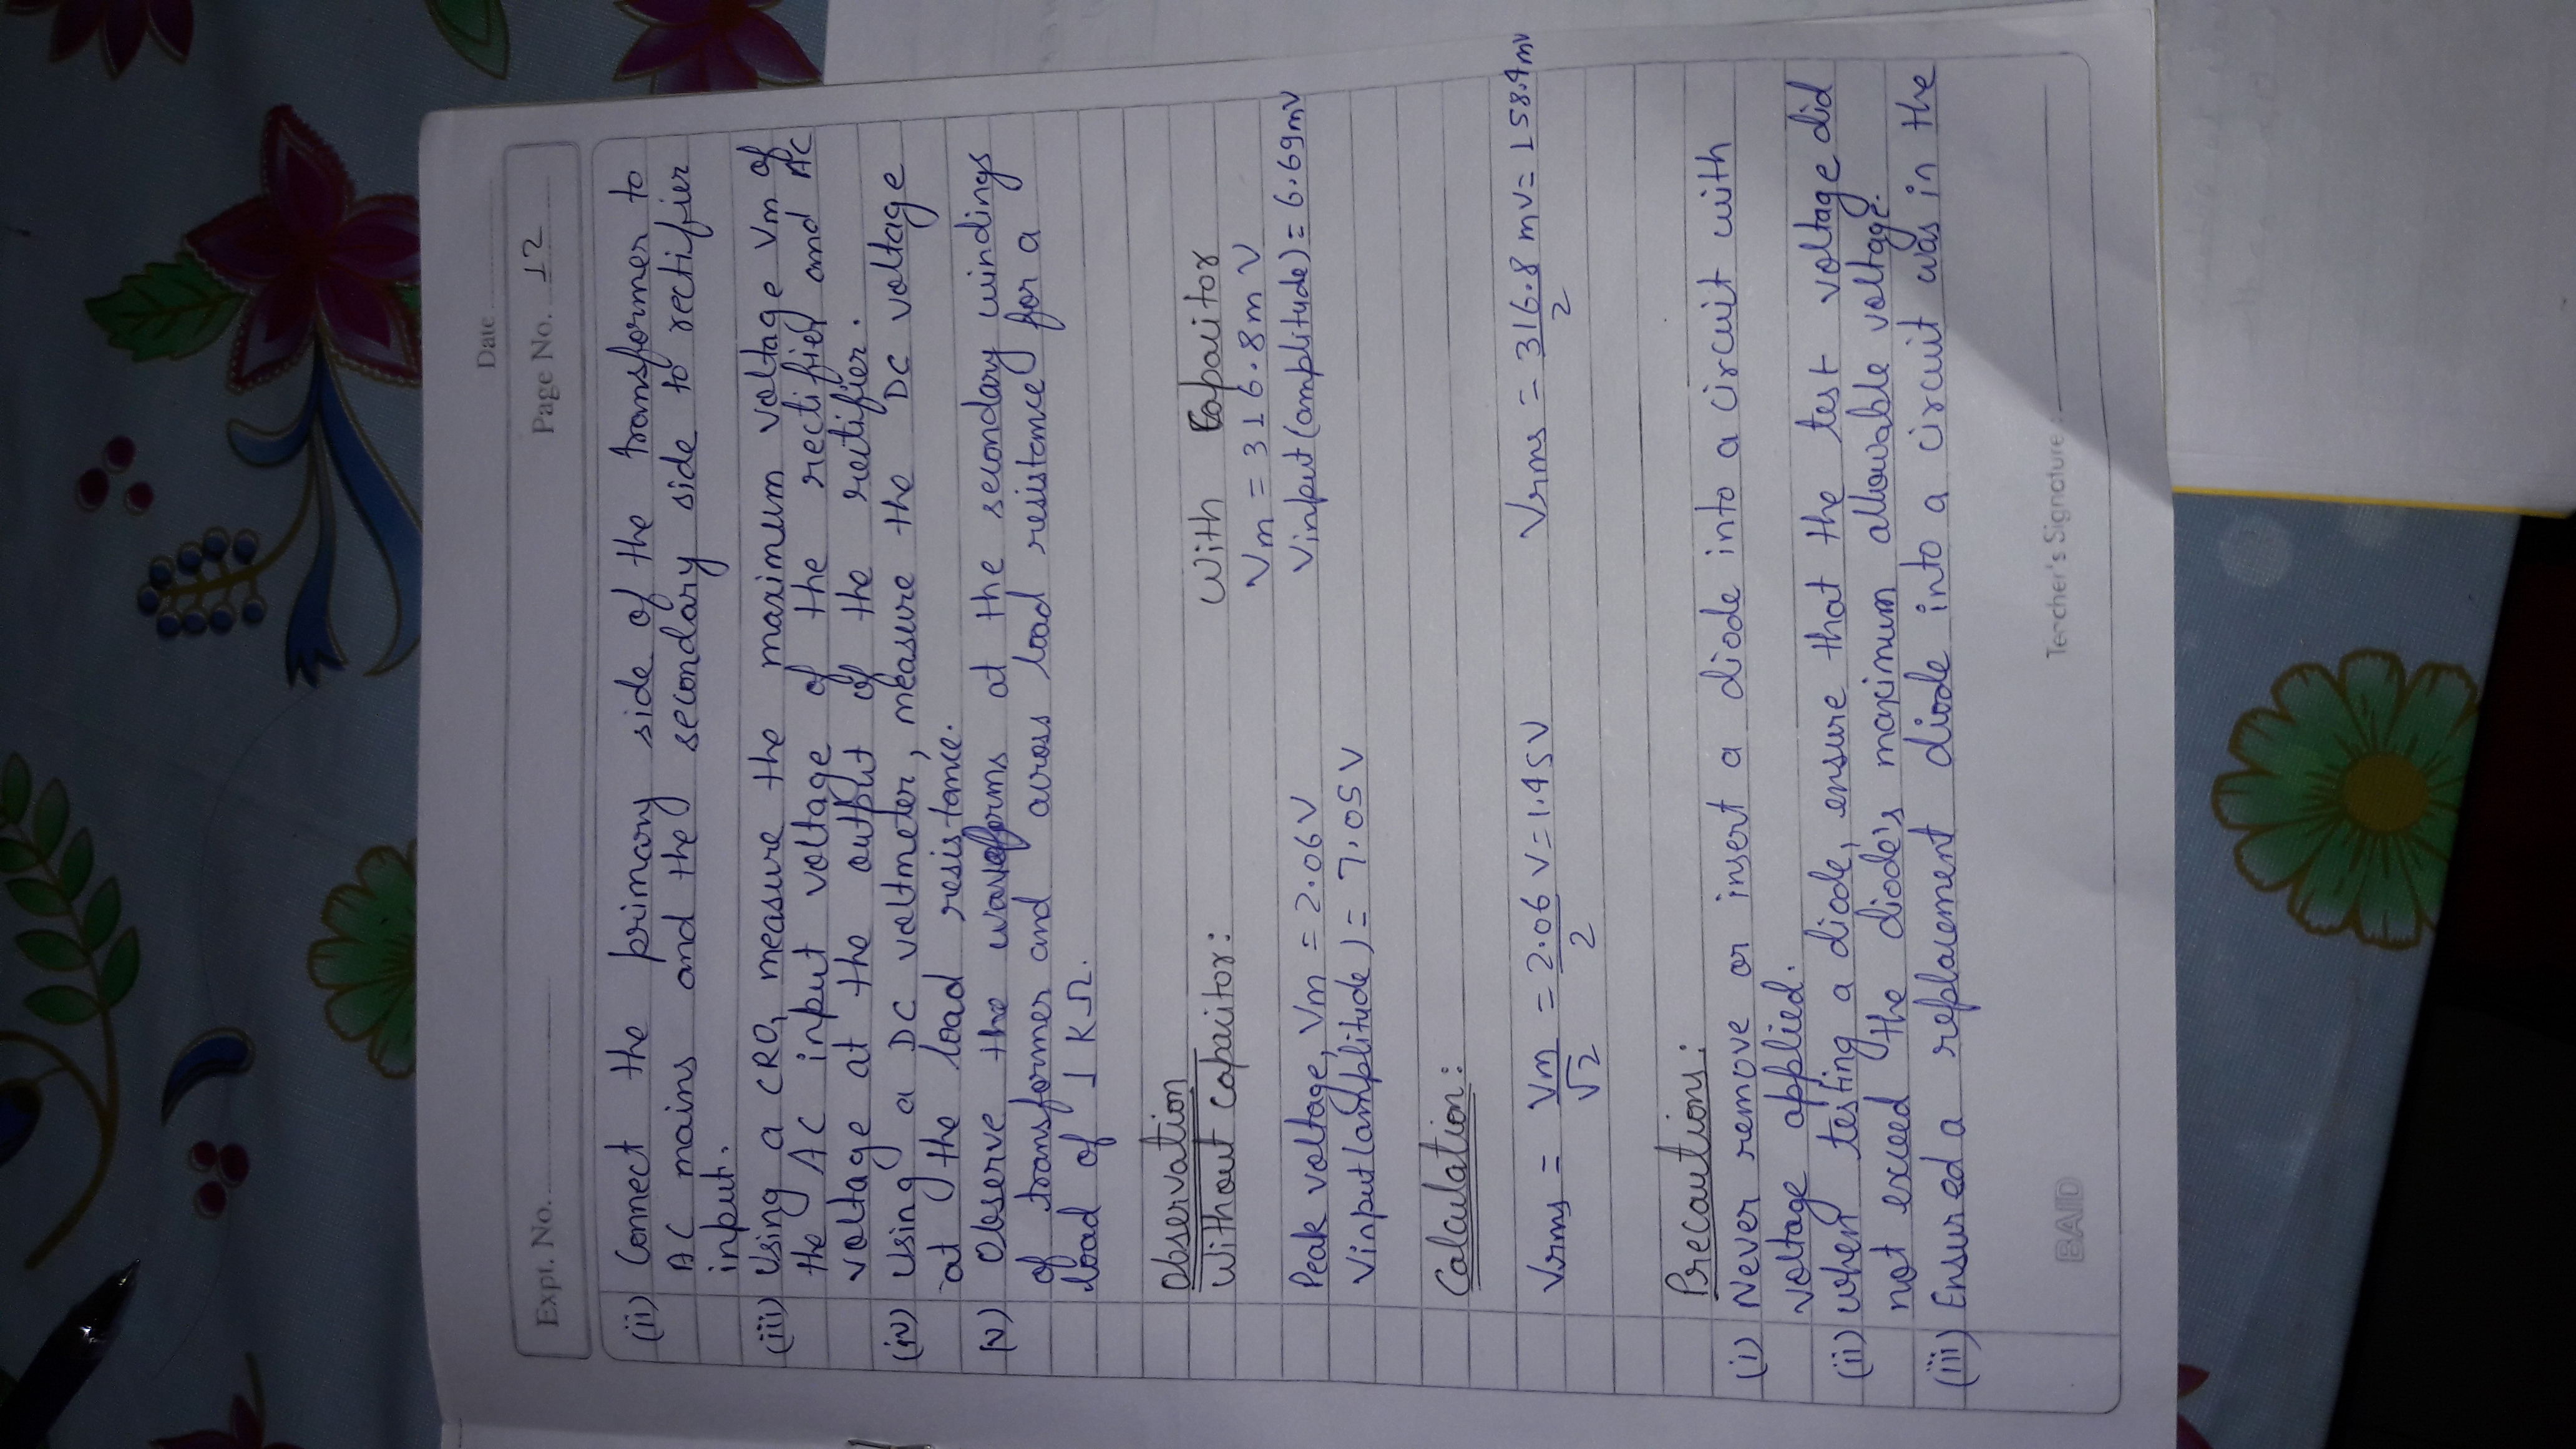 Date
Expt. No.
Page No. 12
(ii) Connect the primary side of the transformer to
AC mains and the secondary side to rectifier
input.
(iii) Using a CRO, measure the maximum voltage Vm of
the AC input voltage of the rectifier and AC
voltage at the output of the rectifier.
(iv) Using a DC voltmeter, measure the DC voltage
at the load resistance.
(v) Observe the waveforms at the secondary windings
of transformer and across load resistance for a
load of 1 KΩ.
Observation
Without capacitor:
With Capacitor
Vm = 316.8m V
Peak voltage, Vm = 2.06V
Vinput (amplitude) = 6.69mV
Vinput(amplitude) = 7.05 V
Calculation:
Vrms = Vm/√2 = 2.06/2 V = 1.45V
Vrms = 316.8/2 mV = 158.4mV
Precautions:
(i) Never remove or insert a diode into a circuit with
voltage applied.
(ii) When testing a diode, ensure that the test voltage did
not exceed the diode's maximum allowable voltage.
(iii) Ensured a replacement diode into a circuit was in the
BAID
Teacher's Signature :